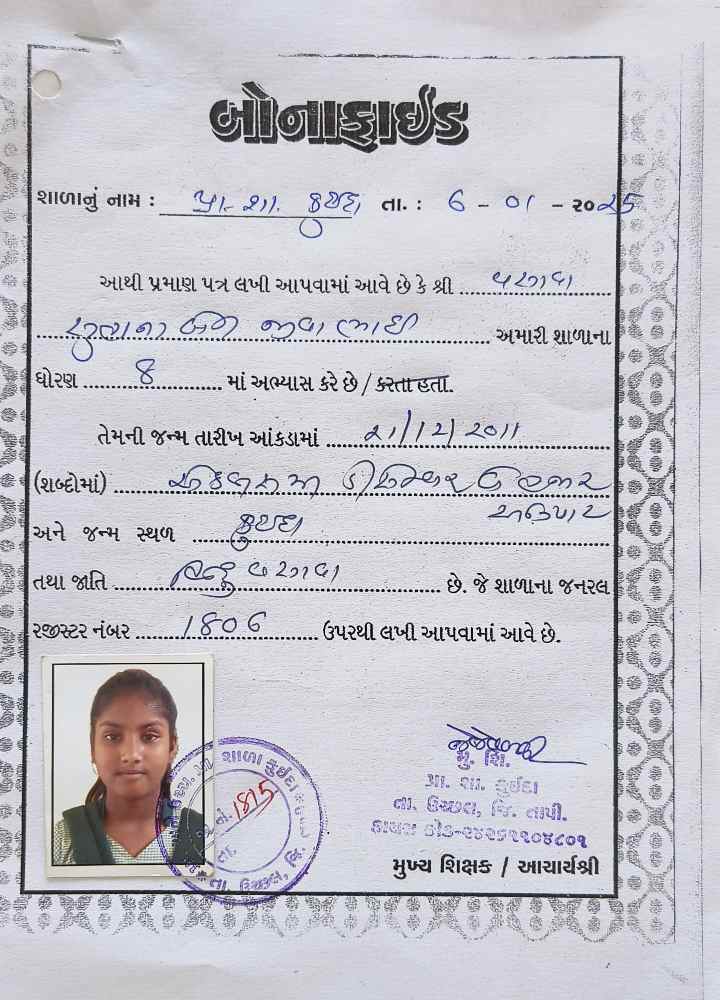 બોનાફાઈડ
શાળાનું નામ : પ્રા. શા. કુઈદા, તા. : 6 - 01 - ૨૦25
આથી પ્રમાણ પત્ર લખી આપવામાં આવે છે કે શ્રી .... વસાવા
અમારી શાળાના
ધોરણ .... 8 .... માં અભ્યાસ કરે છે / કરતા હતા.
તેમની જન્મ તારીખ આંકડામાં .... 21/12/2011
(શબ્દોમાં) .... એકવીસમી ડીસેમ્બર બે હજાર
અગિયાર
અને જન્મ સ્થળ .... કુઈદા
તથા જાતિ .... હિન્દુ વસાવા .... છે. જે શાળાના જનરલ
રજીસ્ટર નંબર .... 1806 .... ઉપરથી લખી આપવામાં આવે છે.
મુ. શિ.
પ્રા. શા. કુઈદા
તા. ઉચ્છલ, જિ. તાપી.
1815
મુખ્ય શિક્ષક / આચાર્યશ્રી